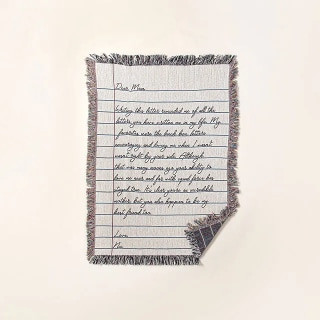 Dear Mom
Writing this letter reminded me of all the
letters you have written me in my life. My
favorites were the lunch box letters
encouraging and loving me when I wasn't
wasn't right by your side. Although
that was many moons ago your ability to
love me near and far with equal force has
stayed true. It's clear you're an incredible
writer but you also happen to be my
best friend too.
Love,